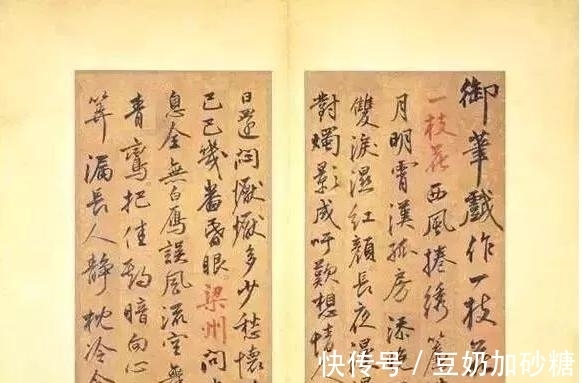 御筆戲作一枝
一枝花西風捲綉
月明霄漢孤房添
雙淚濕紅顏長夜
對燭影成吁歎想情人
日還悶懨懨多少愁懷
幾番昏眼梁州問
息全無白鴈誤風流空
青鸞把佳約暗向心
筭漏長人靜枕冷衾
快传号 / 豆奶加砂糖